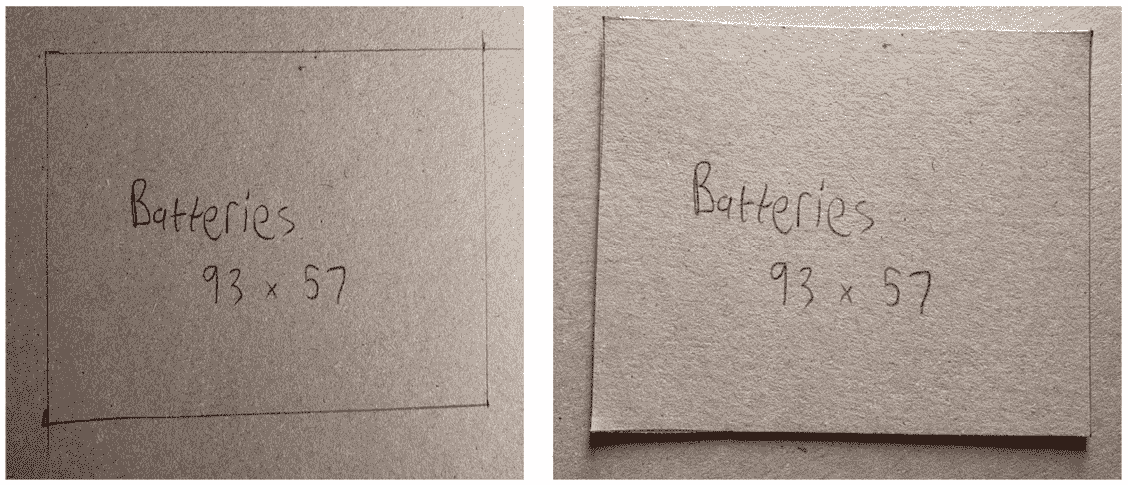 Batteries
93 x 57
Batteries
93 x 57